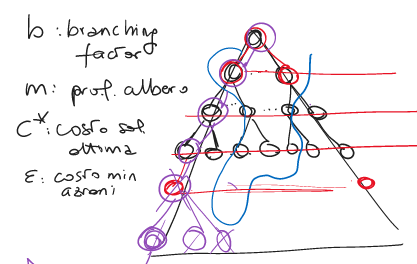 b : branching
factor
m : prof. albero
C* : costo sol.
ottima
ε : costo min
azioni